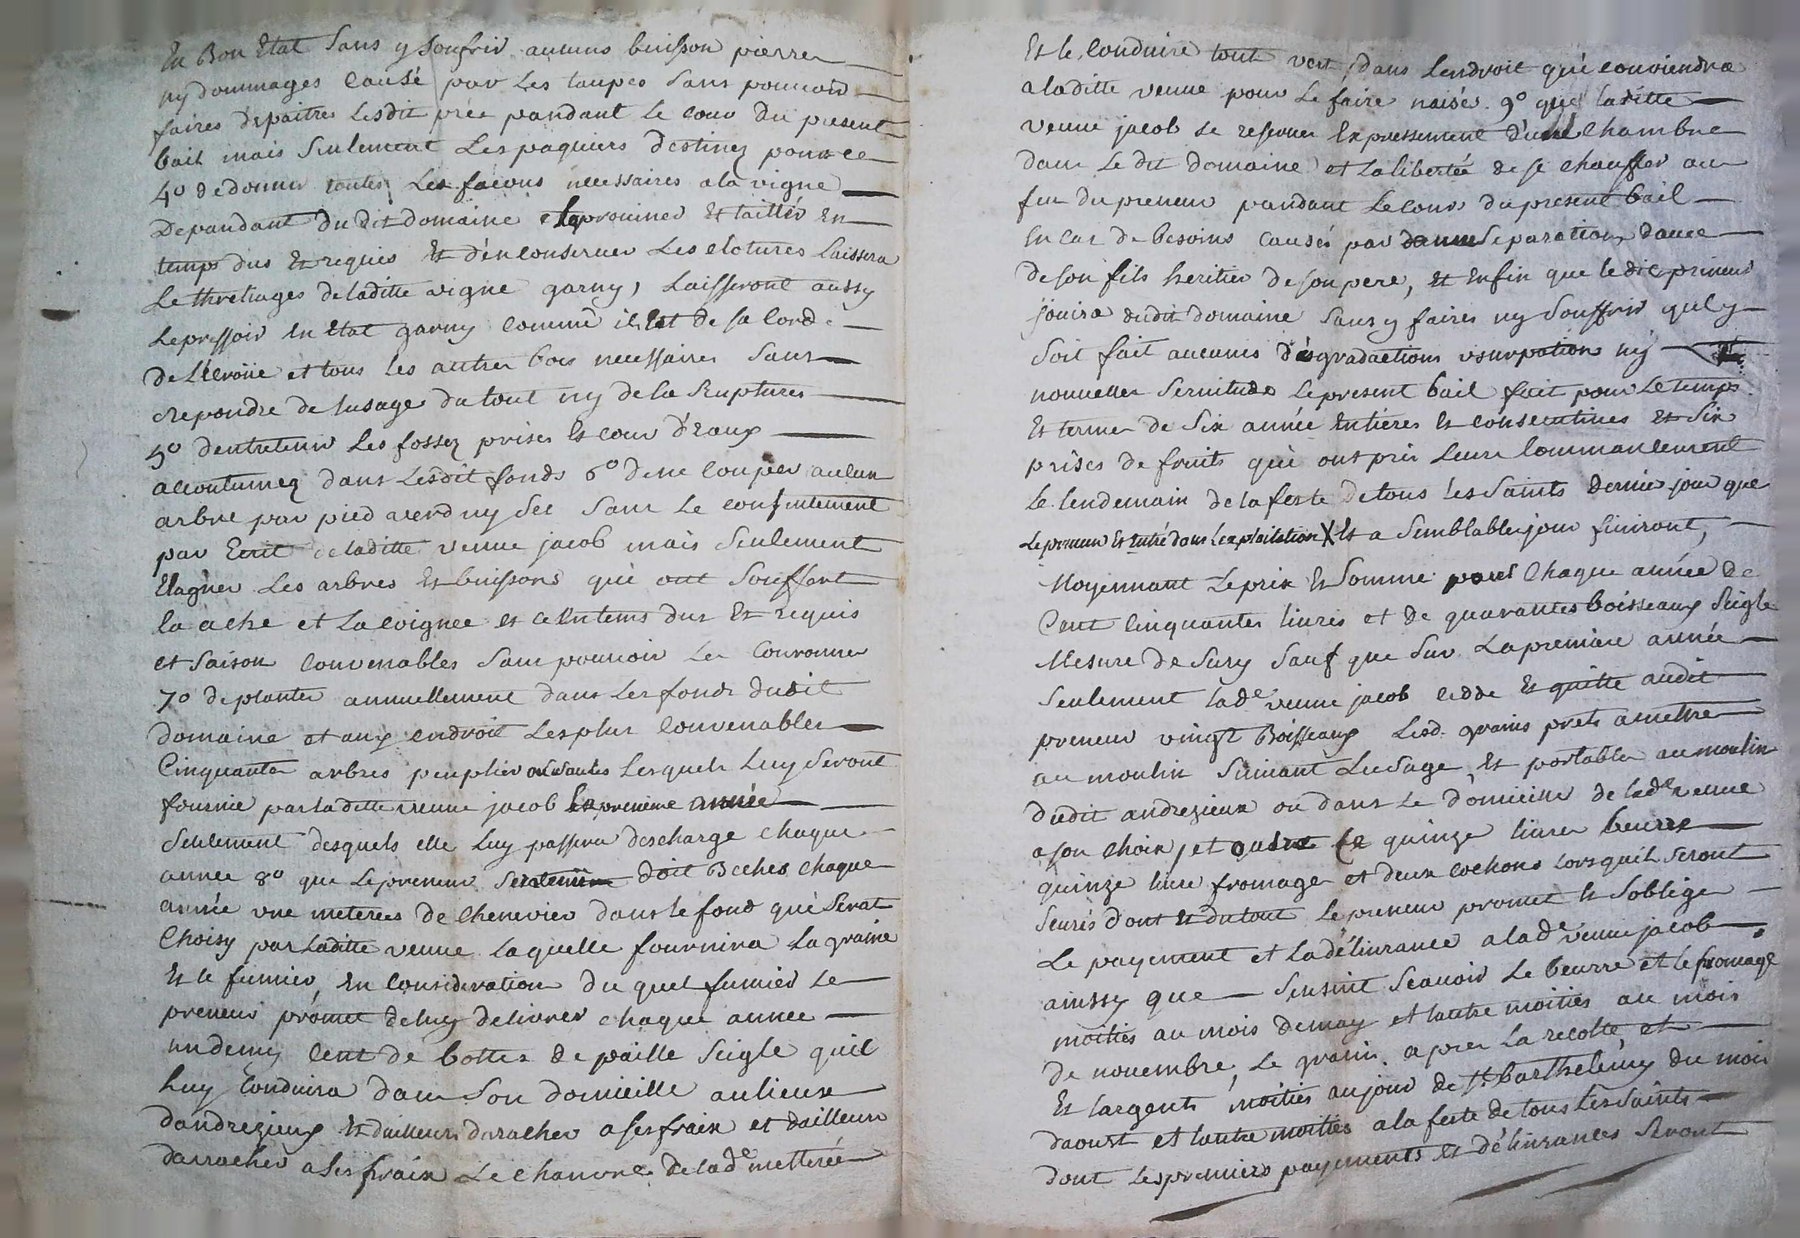 En Bon Etat sans y soufrir aucuns buisson pierres
ny dommages causé par les taupes sans pouvoir
faires dépaitres lesdit prée pandant le cour du present
bail mais seulement les paquiers destinez pour ce
4º de donner toutes les façons necessaires a la vigne
Dependant du dit domaine la prouiner et tailler en
temps dus et requis et d'en conserver les clotures laissera
le threliages de laditte vigne garny, laisseront aussy
le pressoir en etat garny comme il est de sa corde
de l'écroüe et tous les autres bois necessaires sans
repondre de lusage du tout ny de la Ruptures
5º dentretenir les fossez prises et cour d'Eaux
acoutumez dans lesdit fonds 6º de ne couper aucun
arbre par pied verd ny sec sans le consentement
par Ecrit de laditte veuve jacob mais seulement
Elaguer les arbres et buissons qui ont souffert
la ache et la coignee et ce en tems dus et requis
et saison convenables sans pouvoir les couronner
7º de planter annuellement dans les fonds dudit
domaine et aux endroit les plus convenables
Cinquantes arbres peuplier ou saules lesquels luy seront
fournie par laditte veuve jacob la premiere année
seulement desquels elle luy passera descharge chaque
année 8º que le preneur doit Becher chaque
année une meterées de chenevier dans le fond qui serat
choisy par laditte veuve laquelle fournira la graine
et le fumier, en consideration du quel fumier le
preneur promet de luy delivrer chaque année
un demy cent de bottes de paille seigle quil
luy conduira dans son domicille au lieux
dandrezieux et dailleurs daracher a ses fraix et dailleur
darracher a ses fraix le chanvre de lade metterée
Et le conduire tout vert dans lendroit qui conviendra
a laditte veuve pour le faire naisér. 9º que laditte
veuve jacob se reserver Expressement d'une chambre
dans le dit domaine et la libertée de se chauffer au
feu du preneur pandant le cour du present bail
en cas de besoins causés par separation davec
de son fils heritier de son pere, et enfin que le dit preneur
jouira dudit domaine sans y faires ny souffrir quil y
soit fait aucunes dégradactions usurpations ny
nouvelles servitudes le present bail fait pour le temps
et termes de six année entieres et consecutives et six
prises de fruits qui ont pris leurs commancement
le lendemain de la feste de tous les saints dernier jour que
le preneur est entré dans l'exploitation X et a semblables jour finiront,
Moyennant le prix et somme pour chaque année de
Cent cinquantes livres et de quarantes boisseaux seigle
Mesure de Sury sauf que sur la premiere année
seulement lade veuve jacob cedde et quitte audit
preneur vingt Boisseaux lesd. grains prets a mettre
au moulin suivant lusage, et portables au moulin
dudit andrezieux ou dans le domicille de lade veuve
a son choix, et outre ce quinze livres beurre
quinze livre fromage et deux cochons lors quil seront
seurés dont et du tout le preneur promet et soblige
le payement et la délivrance a lade veuve jacob
ainssy que sensuit scavoir le beurre et le fromage
moities au mois de may et lautre moities au mois
de novembre, le grain apres la recolte et
Et largents moities au jour de St. barthelemy du mois
daoust et lautre moities a la feste de tous les saints
dont les premiers payements et délivrances seront